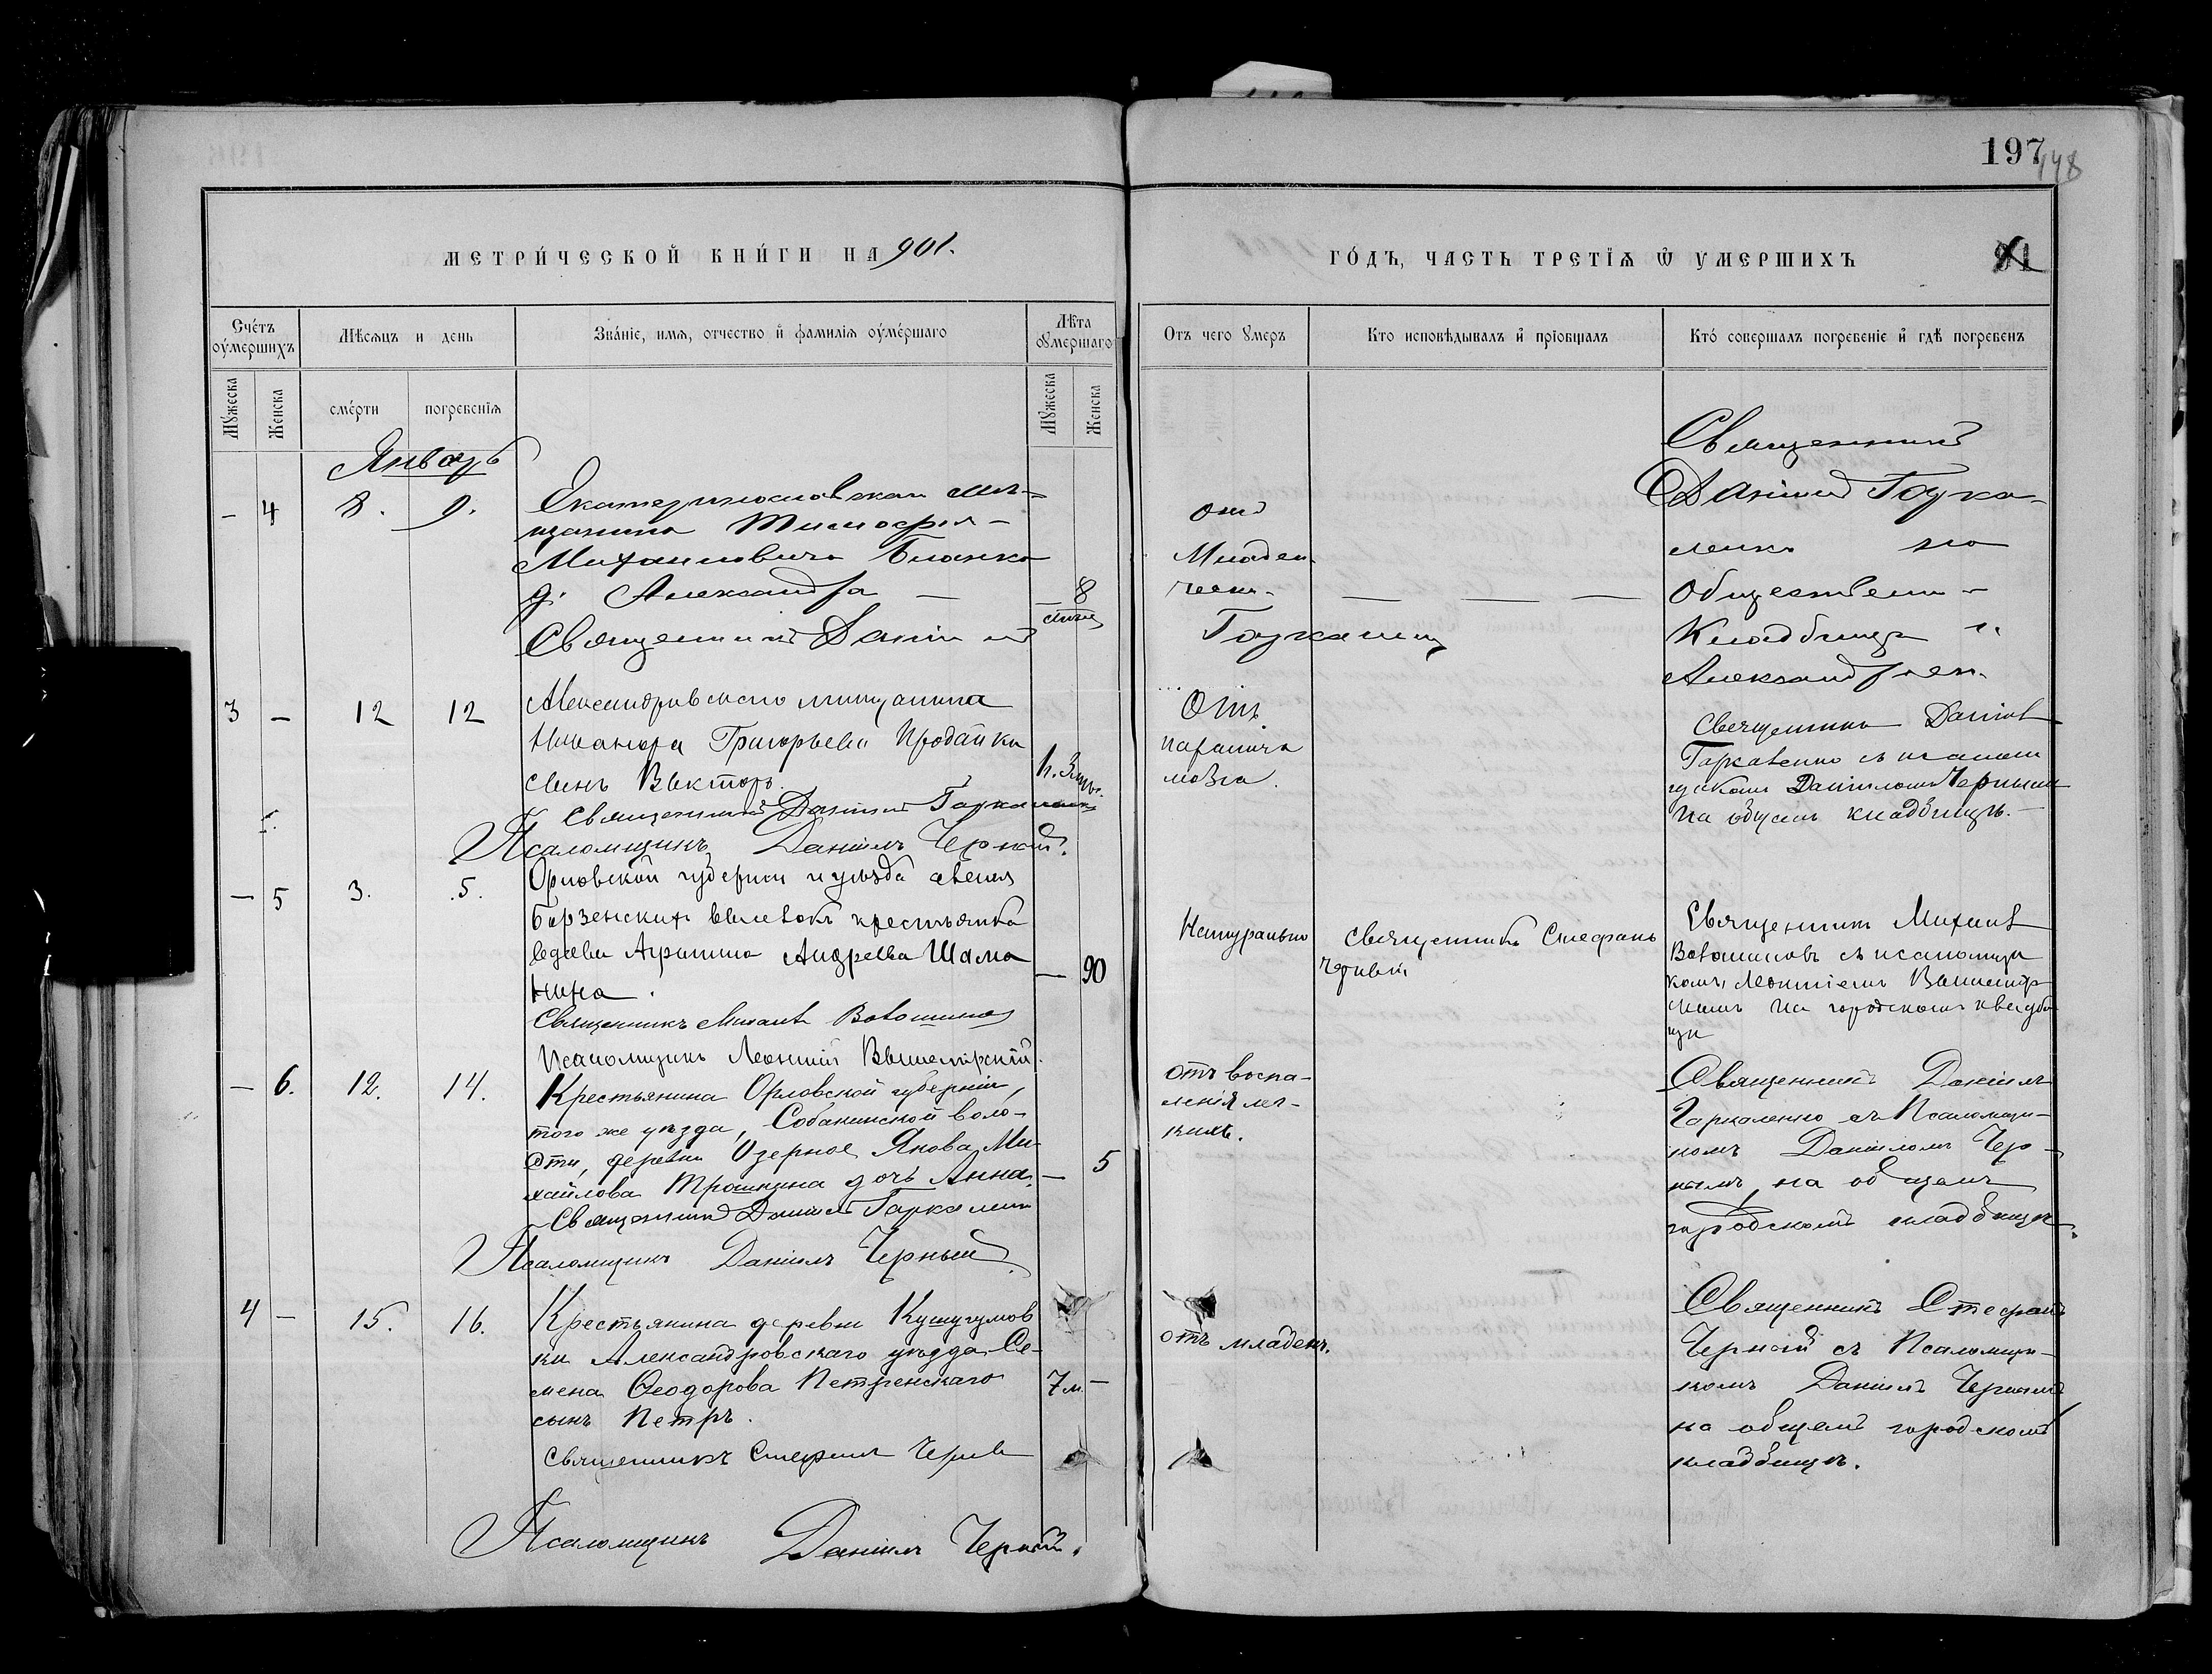 197
148
МЕТРИ́ЧЕСКОЙ КНИ́ГИ НА 901.
ГО́ДЪ, ЧАСТЬ ТРЕТІѦ Ѿ УМЕРШИХЪ
91
Сче́тъ оу҆ме́ршихъ
Мѣсѧцъ и день
Зва́ніе, имѧ, отчество и҆ фамилія оу҆ме́ршаго
Лѣ́та оу҆ме́ршаго
Мꙋ́жеска
Женска
сме́рти
погребенія
Мꙋ́жеска
Женска
Отъ чего ᲂумеръ
Кто исповѣдывалъ и҆ пріобщалъ
Кто́ совершалъ погребеніе и҆ гдѣ погребенъ
Январь
— 4
8. 9.
Екатеринославскаго мѣ-
щанина Тимофея
Михаиловича Бланка
д. Александра —
— 8
Священникъ Даніилъ
отъ
Младен
ческ.
Священникъ
Даніилъ
на
Обществен —
Кладбище
Александров.
3 —
12 12
Александровскаго мещанина
Никанора Григорьева Продайко
сынъ Викторъ.
Священникъ Даніилъ Гаркаленко
Псаломщикъ Даніилъ Черный.
Отъ
паралича
мозга.
Священникъ Даніилъ
Гаркаленко съ псалом
щикомъ Даніиломъ Чернымъ
на общемъ кладбищѣ. —
— 5
3. 5.
Орловской губерніи и уѣзда
крестьянка
Андреева Шама
нина.
— 90
Священникъ Михаилъ Волошиновъ
Псаломщикъ Леонтій Вышемірскій.
Натурально
Священникъ Стефанъ
Черный
Священникъ Михаилъ
Волошиновъ съ псаломщи
комъ Леонтіемъ Вышемір
скимъ на городскомъ кладби
щѣ
— 6.
12. 14.
Крестьянина Орловской губерніи,
того же уѣзда, Собакинской воло-
сти, деревни Озерное Якова Ми-
хайлова Трошкина дочь Анна.
— 5
Священникъ Даніилъ Гаркаленко
Псаломщикъ Даніилъ Черный
отъ воспа-
ленія лег-
кихъ.
Священникъ Даніилъ
Гаркаленко съ Псаломщи-
комъ Даніиломъ Чер-
нымъ, на общемъ
городскомъ кладбищѣ.
4 —
15. 16.
Крестьянина деревни Кушугумов
ки Александровскаго уѣзда Се-
мена Ѳеодорова Петренскаго
сынъ Петръ.
7 м. —
Священникъ Стефанъ Черный
Псаломщикъ Даніилъ Черный.
отъ младенч.
Священникъ Стефанъ
Черный съ Псаломщи-
комъ Даніилъ Чернымъ
на общемъ городскомъ
кладбищѣ.